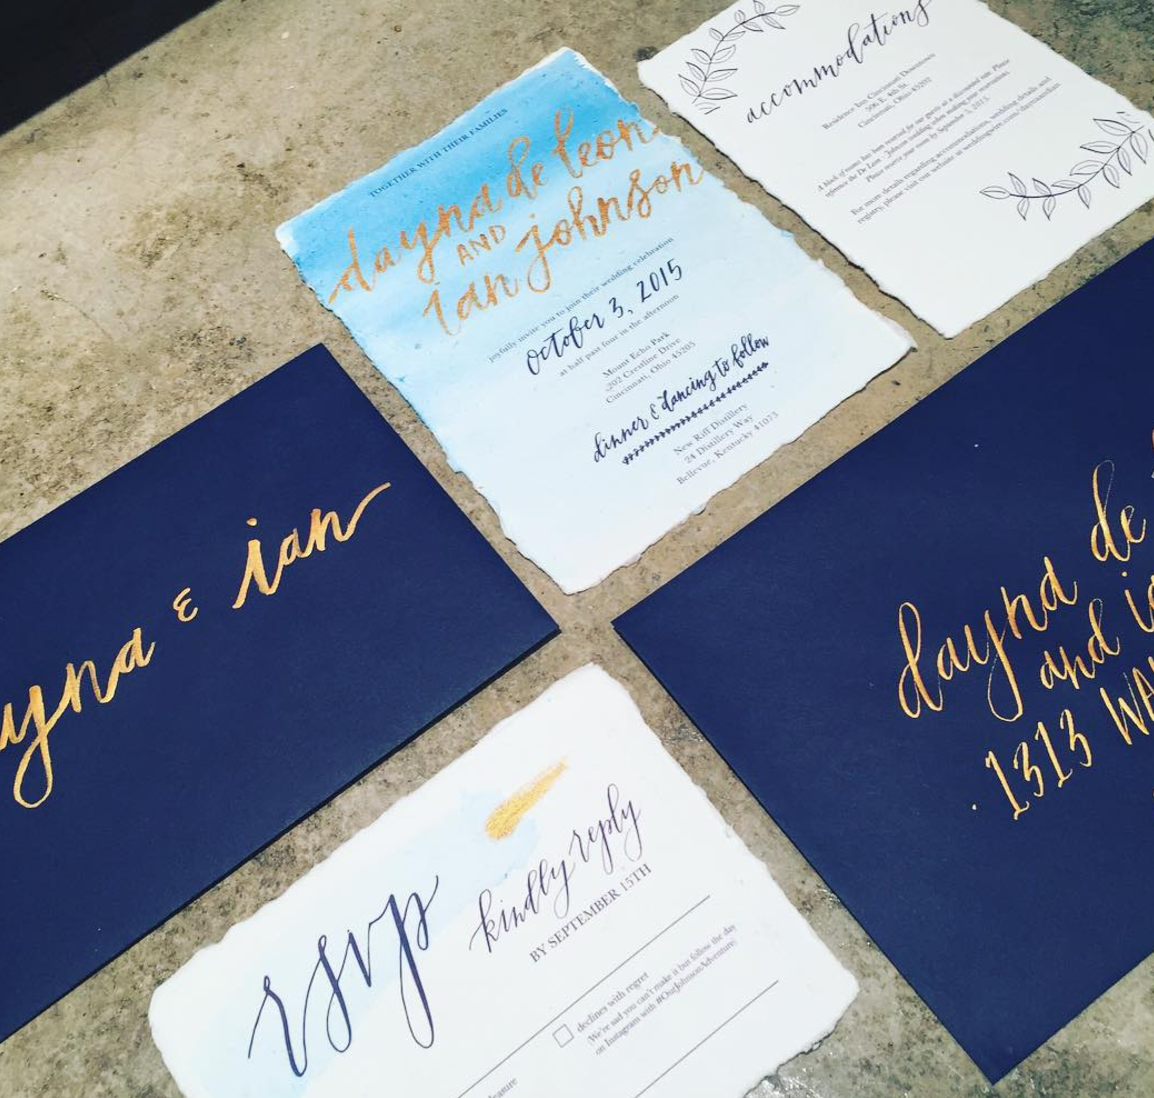 TOGETHER WITH THEIR FAMILIES
dayna de leon
AND
ian johnson
joyfully invite you to join their wedding celebration
October 3, 2015
at half past four in the afternoon
Mount Echo Park
202 Crestline Drive
Cincinnati, Ohio 45205
dinner & dancing to follow
New Riff Distillery
24 Distillery Way
Bellevue, Kentucky 41073
accommodations
Residence Inn Cincinnati Downtown
506 E. 4th St.
Cincinnati, Ohio 45202
A block of rooms has been reserved for our guests at a discounted rate. Please
reference the De Leon - Johnson wedding when making your reservations.
Please reserve your room by September 3, 2015.
For more details regarding accommodations, wedding details and
registry, please visit our website at
ayna & ian
dayna de
and ia
1313 WA
rsvp
kindly reply
BY SEPTEMBER 15TH
declines with regret
(We're sad you can't make it but follow the day
on Instagram with #OurJohnsonAdventure)